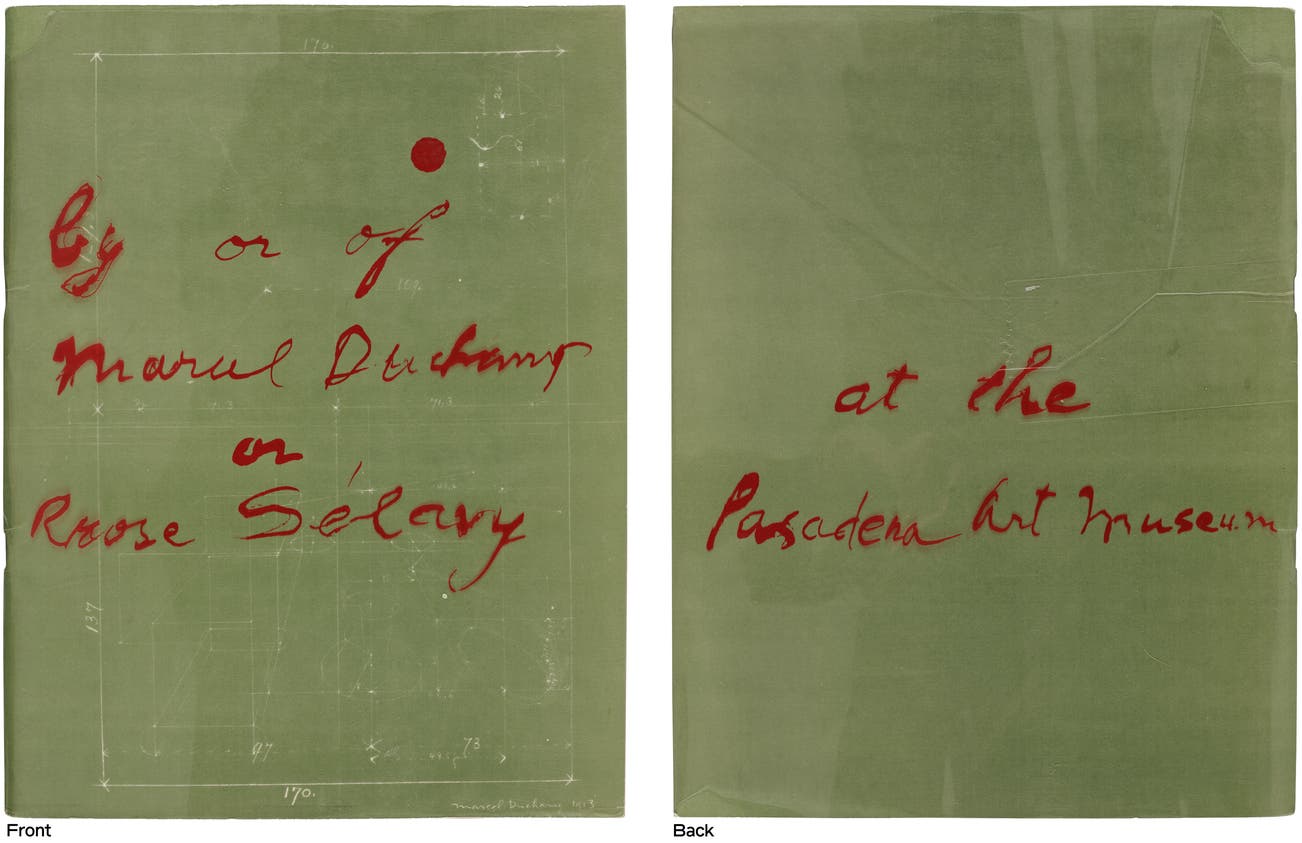 170.
by or of
109.
Marcel Duchamp
or
Rrose Sélavy
137
97
73
170.
marcel Duchamp 1913
at the
Pasadena Art Museum
Front
Back